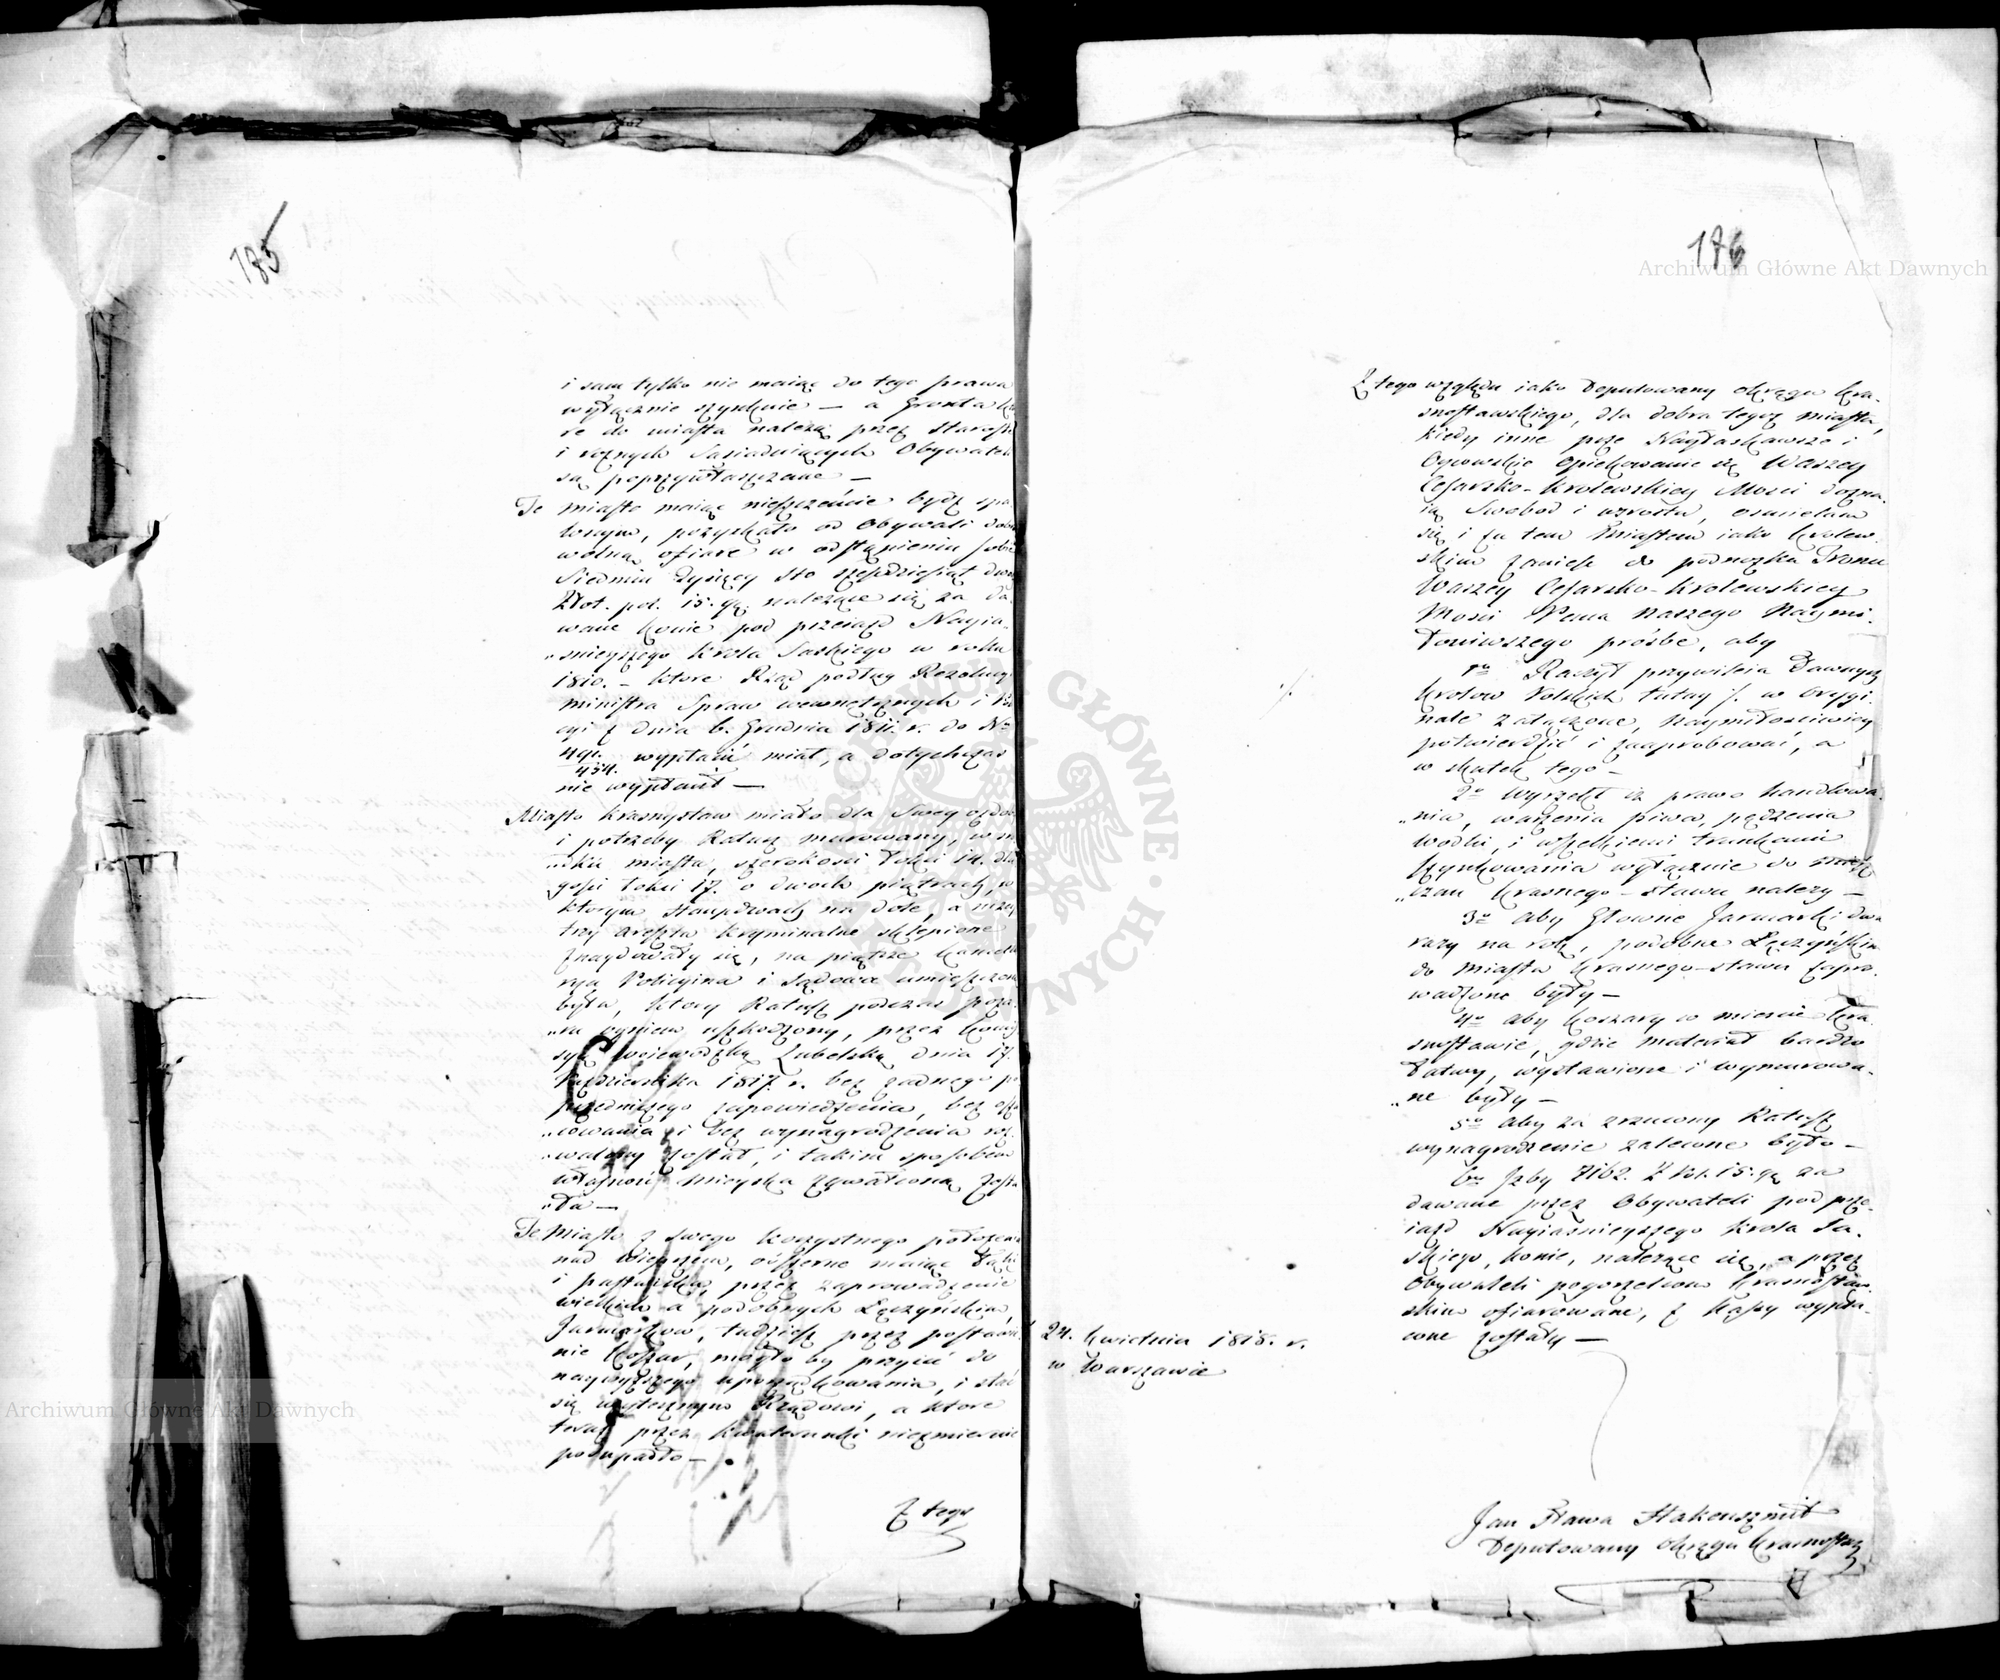 185
i sam tylko nie maiąc do tego prawa
wyłącznie szynkuie — a Grunta któ
re do miasta należą przez Starostę
i rożnych Sasiaduiących Obywateli
są poprzywłaszczane —
Te miasto maiąc nieszczęście bydź spa
lonym, pozyskało od Obywateli dobro
wolną ofiarę w odstąpieniu sobie
Siedmiu Tysięcy Sto sześćdziesiąt dwóch
Złot. pol. 15. gr. należące się za da
wane konie pod przeiazd Nayia-
„snieyszego Krola Saskiego w roku
1810. — ktore Rząd podług Rezolucyi
Ministra Spraw wewnętrznych i Re
cyi z dnia 6. Grudnia 1811. r. do No
491.
454. wypłacić miał, a dotychczas
nie wypłacił —
Miasto Krasnystaw miało dla Swey ozdoby
i potrzeby Ratusz murowany, w ryn
„ku miasta, szerokości łokci 14. dłu
gości łokci 17. o dwoch piątrach, w
ktorym Hauptwach na dole, a niżey
trzy areszta kryminalne sklepione
znaydowały się, na piątrze kancella
rya Policyina i Sądowa umieszczona
była, ktory Ratusz podczas poża
„ru ogniem uszkodzony, przez Komis
syą woiewodzką Lubelską dnia 17.
Października 1817. r. bez żadnego po
przedniczego zapowiedzenia, bez osza
„cowania i bez wynagrodzenia roz
„walony został, i takim sposobem
własność Mieyska zgwałconą zosta
„ła —
Te Miasto z swego korzystnego położenia
nad Wieprzem, obszerne maiąc Łąki
i pastwiska, przez zaprowadzenie
wielkich a podobnych Łęczyńskim,
Jarmarkow, tudzież przez postawie
nie Koszar, mogło by przyiść do
naywyższego uporządkowania, i stać
się użytecznym Rządowi, a ktore
teraz przez kwaterunki niezmiernie
podupadło —
Z tego
186
Z tego względu iako Deputowany okręgu Kra-
snostawskiego, dla dobra tegoż miasta,
kiedy inne prze Nayłaskawsze i
Oycowskie Opiekowanie się Waszey
Cesarsko-Krolewskiey Mosci dozna.
ią Swobod i wzrostu, osmielam
się i za tem Miastem iako Krolew.
skim zanieść do podnożka Tronu
Waszey Cesarsko-Krolewskiey
Mosci Pana Naszego Naymi.
łosciwszego prośbe, aby
1o Raczył przywileia Dawnych
Krolow Polskich tutay /. w Orygi.
nale załączone, Naymiłosciwiey
potwierdzić i zaaprobować, a
w skutek tego —
2o Wyrzekł iż prawo Handlowa
„nia, warzenia piwa, pędzenia
wodki, i wszelkiemi trunkami
szynkowania wyłącznie do miesz
„czan Krasnego-stawu należy —
3o aby Głowne Jarmarki dwa
razy na rok, podobne Łęczyńskim
do Miasta Krasnego-stawu zapro.
wadzone były —
4o aby koszary w miescie Kra.
snostawie, gdzie materiał bardzo
łatwy, wystawione i wymurowa.
„ne były —
5o aby za zrzucony Ratusz
wynagrodzenie zalecone było —
6o Jżby 7162. Zł pol. 15. gr za
dawane przez Obywateli pod prze.
iazd Nayiasnieyszego Krola Sa.
skiego, konie, należące się, a przez
Obywateli pogorzelcom Krasnostaw.
skim ofiarowane, z Kassy wypła-
cone zostały —
24. Kwietnia 1818. r.
w Warszawie
Jan Hakenszmit
Deputowany Okręgu Krasnostaw
Archiwum Główne Akt Dawnych
Archiwum Główne Akt Dawnych
ARCHIWUM GŁÓWNE AKT DAWNYCH